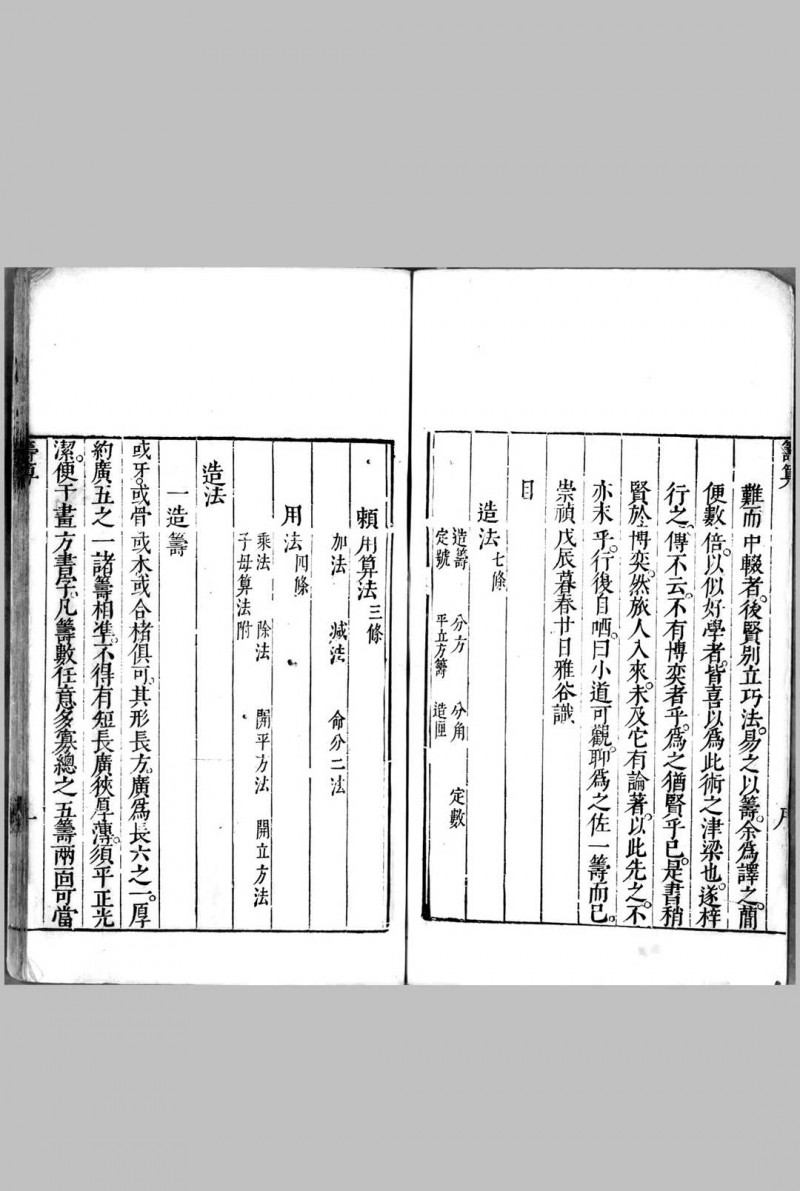 籌算
難而中輟者。後賢別立巧法。易之以籌。余為譯之。𥳑
便數倍。以似好學者。皆喜以爲此術之津梁也。遂梓
行之。傳不云。不有博奕者乎。爲之猶賢乎已。是書稍
賢於博奕。然旅人入來。未及它有論著。以此先之。不
亦末乎。行復自哂曰。小道可觀。聊爲之佐一籌而已。
崇禎戊辰暮春廿日雅谷識
目
造法七條
造籌 分方 分角 定數
定號 平立方籌 造匣
賴用算法三條
加法 減法 命分二法
用法四條
乘法 除法 開平方法 開立方法
子母算法附
造法
一造籌
或牙。或骨。或木。或合楮俱可。其形長方。廣爲長六之一。厚
約廣五之一。諸籌相準。不得有短長廣狹厚薄。須平正光
潔。便于畫方書字。凡籌數任意多寡。總之五籌兩面可當
籌算